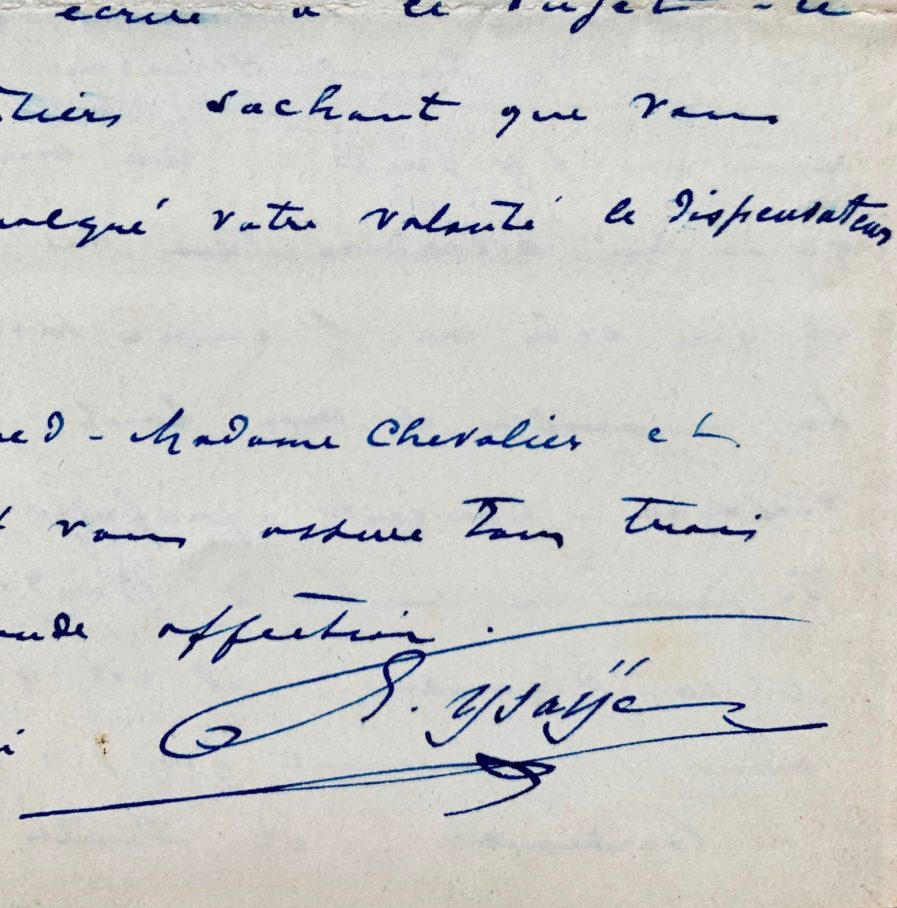 écrire à ce sujet - le
sachant que vous
malgré votre volonté le dispensateur
Madame Chevalier et
vous assure tous trois
affection.
E. Ysaÿe